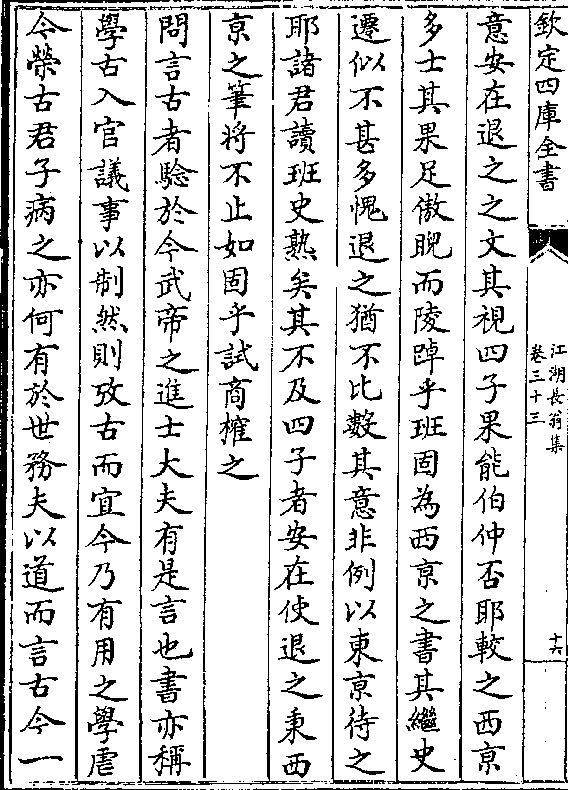 欽定四庫全書
江湖長翁集
卷三十三
十六
意安在退之之文其視四子果能伯仲否耶較之西京
多士其果足傲睨而陵踔乎班固為西京之書其繼史
遷似不甚多愧退之猶不比數其意非例以東京待之
耶諸君讀班史熟矣其不及四子者安在使退之秉西
京之筆将不止如固乎試商榷之
問言古者騐於今武帝之進士大夫有是言也書亦稱
學古入官議事以制然則攷古而宜今乃有用之學虐
今榮古君子病之亦何有於世務夫以道而言古今一